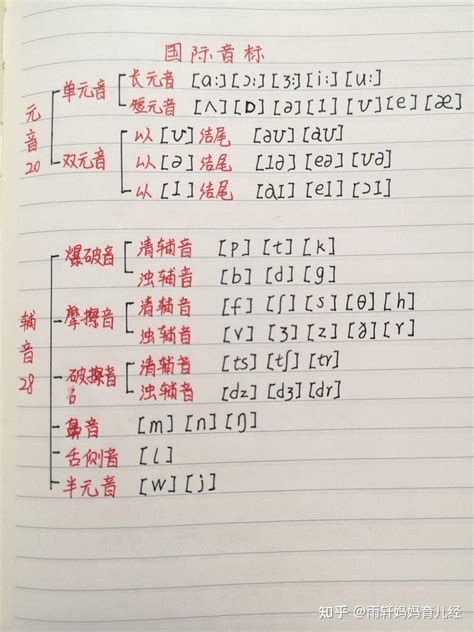 国际音标
元音20
单元音 长元音 [ɑː] [ɔː] [ɜː] [iː] [uː]
短元音 [ʌ] [ɒ] [ə] [ɪ] [ʊ] [e] [æ]
双元音 以[ʊ]结尾 [əʊ] [aʊ]
以[ə]结尾 [ɪə] [eə] [ʊə]
以[ɪ]结尾 [aɪ] [eɪ] [ɔɪ]
辅音28
爆破音 清辅音 [p] [t] [k]
浊辅音 [b] [d] [g]
摩擦音 清辅音 [f] [ʃ] [s] [θ] [h]
浊辅音 [v] [ʒ] [z] [ð] [r]
破擦音 清辅音 [ts] [tʃ] [tr]
浊辅音 [dz] [dʒ] [dr]
鼻音 [m] [n] [ŋ]
舌侧音 [l]
半元音 [w] [j]
知乎 @雨轩妈妈育儿经